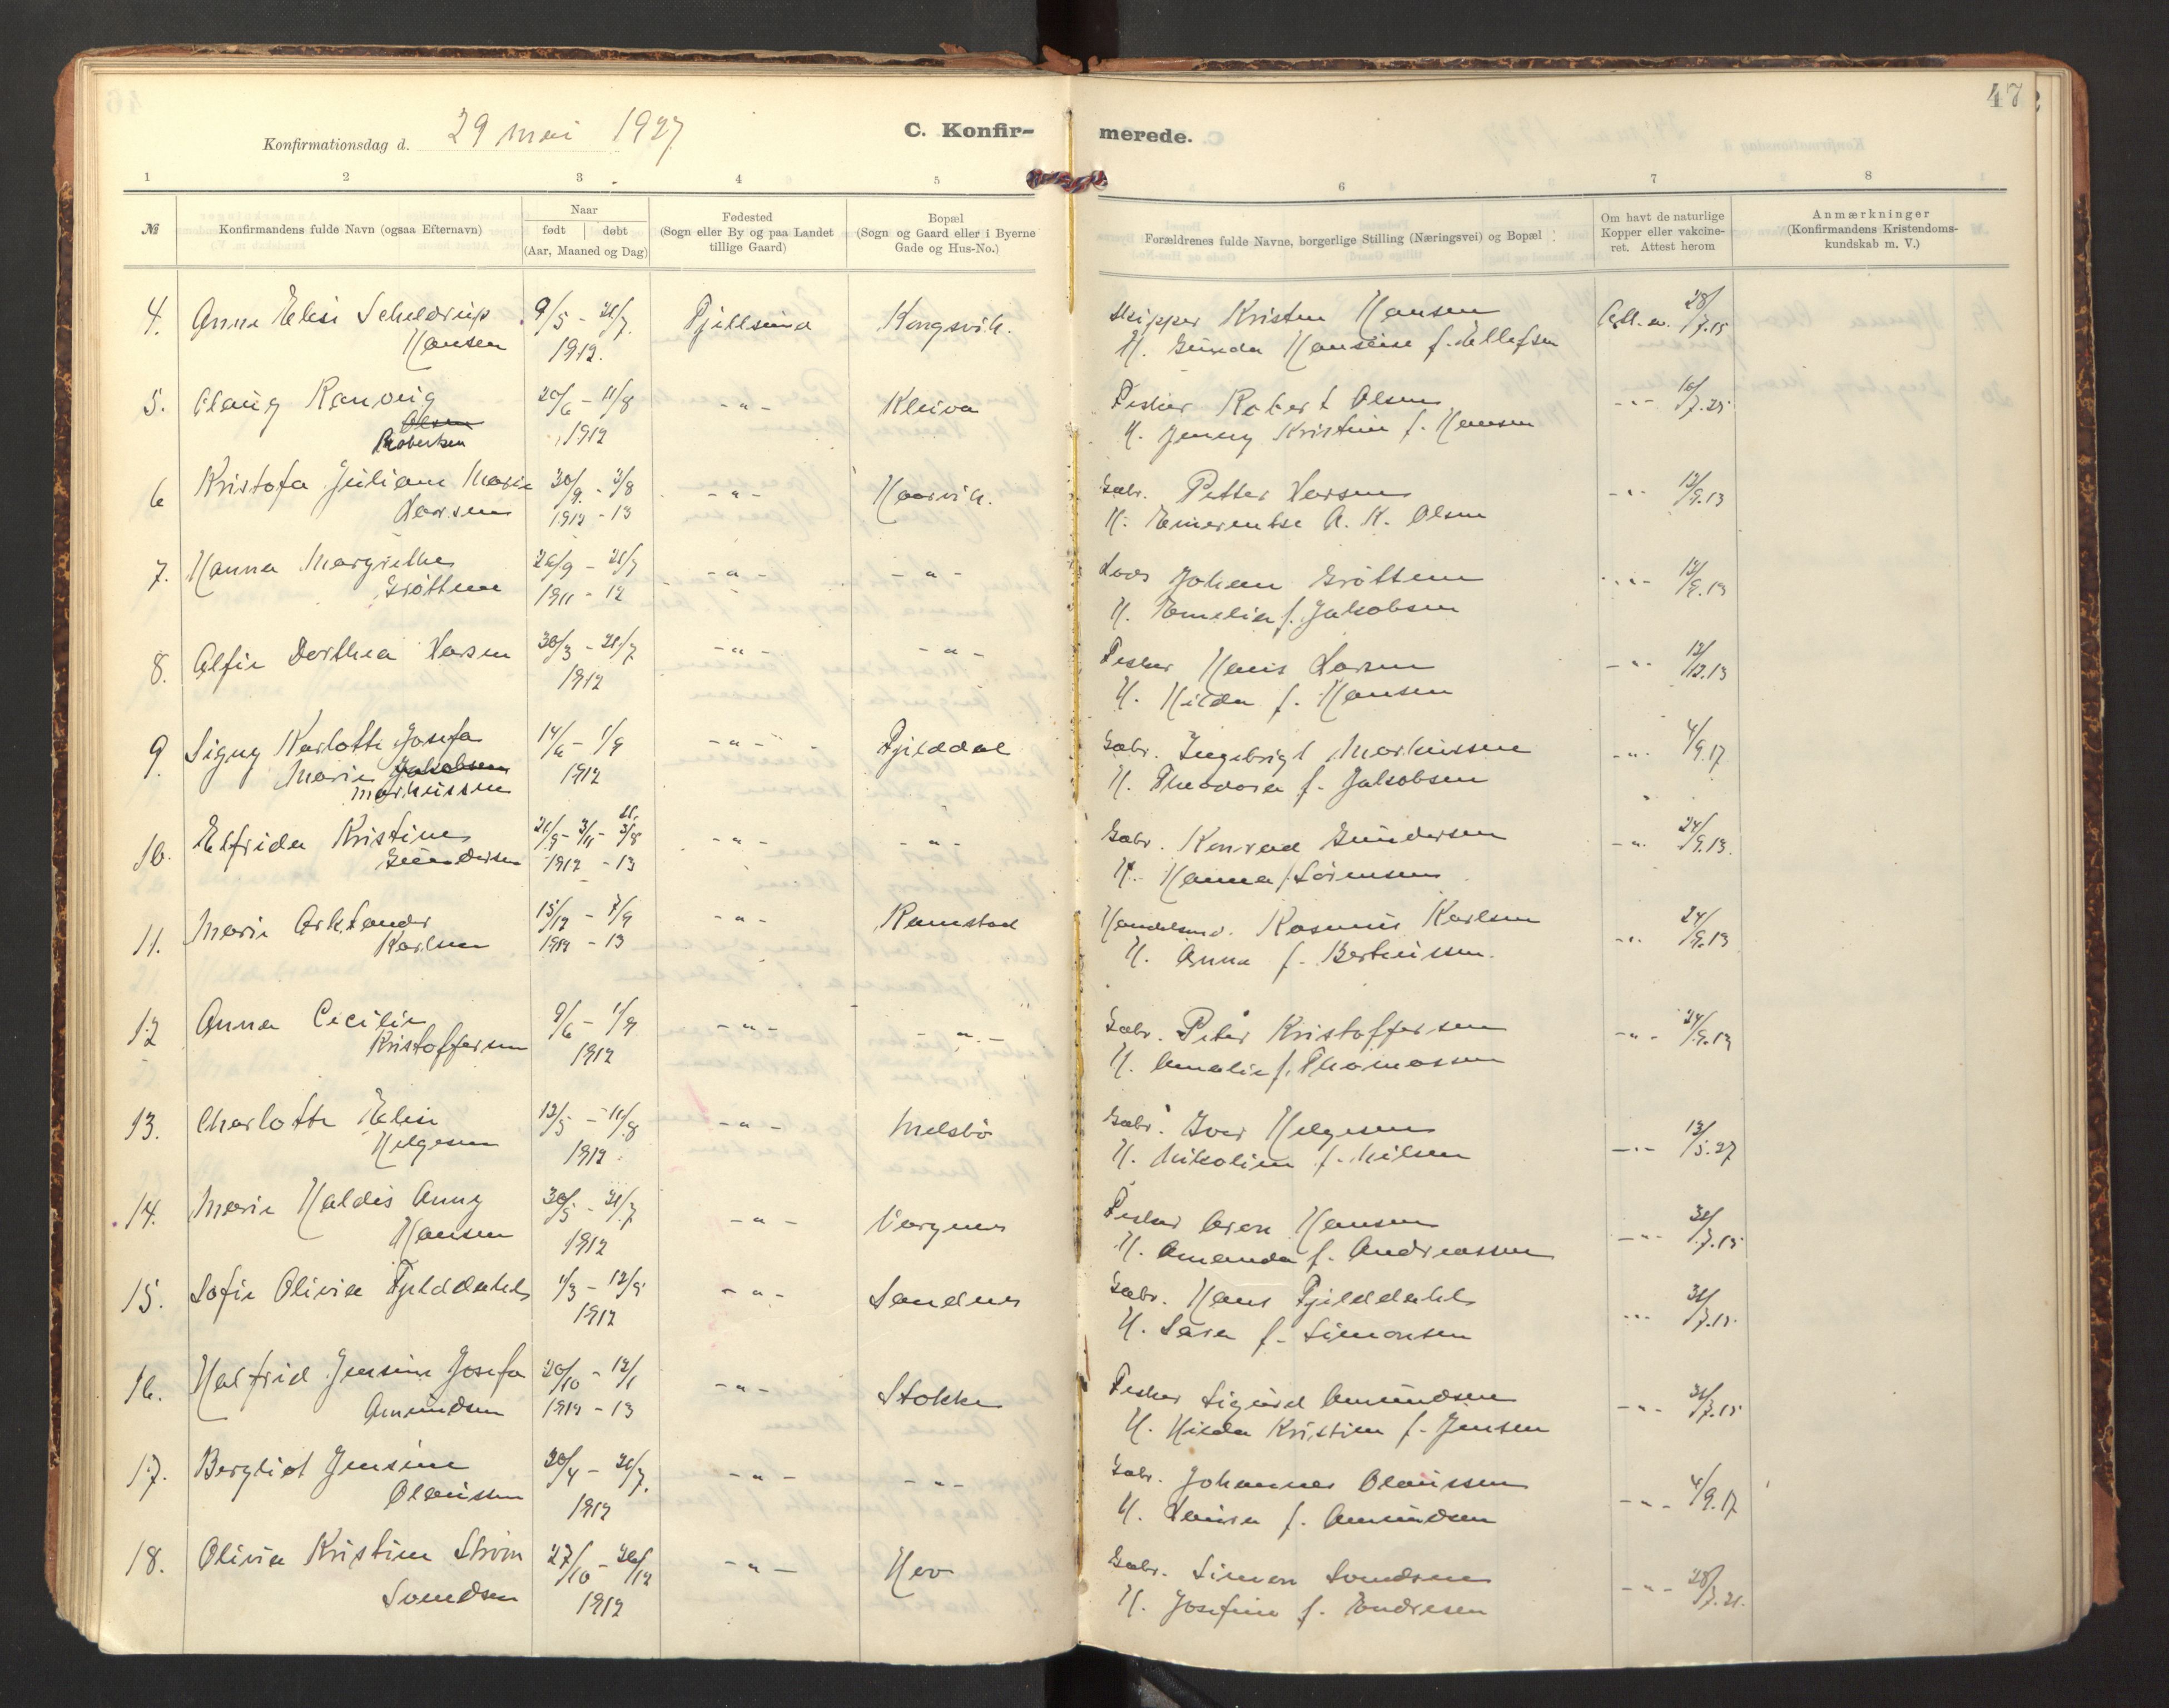 47
Konfirmationsdag d. 29 mai 1927
C. Konfir-
merede.
1 2 3 4 5 6 7 8
№
Konfirmandens fulde Navn (ogsaa Efternavn)
Naar
født døbt
(Aar, Maaned og Dag)
Fødested
(Sogn eller By og paa Landet
tillige Gaard)
Bopæl
(Sogn og Gaard eller i Byerne
Gade og Hus-No.)
Forældrenes fulde Navne, borgerlige Stilling (Næringsvei) og Bopæl
Om havt de naturlige
Kopper eller vakcine-
ret. Attest herom
Anmærkninger
(Konfirmandens Kristendoms-
kundskab m. V.)
4. Anna Elise Scheldrup 9/5 - 21/7. Kongsvik. Skipper Kristen Hansen 28/7.15
Hansen 1912. H. Gunda f. Ellefsen
5. Olaug Ranveig 20/6 - 11/8 -"- Kleiva Fisker Robert Olsen -"- 16/7.25
Olsen
Robertsen 1912 H. Jenny Kristine f. Hansen
6 Kristofa Juliane Marie 30/9 - 3/8 -"- Haarvik. Gbr. Petter Larsen -"- 12/9.13
Larsen 1912 - 13 H. Emerentse A. K. Olsen
7. Hanna Margrethe 26/9 - 21/7 -"- -"- Johan Gröttem -"- 12/9.13
Gröttem 1911 - 12 H. Emelie f. Jakobsen
8. Alfie Dorthea Larsen 30/3 - 21/7 -"- -"- Fisker Hans Larsen -"- 12/12.13
1912 H. Hilda f. Hansen
9. Signy Karlotte Josefa 14/6 - 1/9 -"- Fjelddal Gbr. Ingebrigt Markussen -"- 4/9.17
Marie Jakobsen
Markussen 1912 H. Theodora f. Jakobsen
10. Elfrida Kristine 21/9 - 3/11 - 3/8 -"- -"- Gbr. Konrad Gundersen -"- 24/9.13.
Gundersen 1912 - 13 H. Hanna f. Sörensen
11. Marie Arktander 15/12 - 7/9 -"- Ramstad Handelsmd. Rasmus Karlsen -"- 24/9.13
Karlsen 1912 - 13 H. Anna f. Berteussen.
12 Anna Cecilie 9/6 - 1/9 -"- -"- Gbr. Peter Kristoffersen -"- 24/9.13
Kristoffersen 1912 H. Amalie f. Thomassen
13. Charlotte Elise 12/5 - 11/8 -"- Melsbö Gbr. Iver Helgesen -"- 13/5.27
Helgesen 1912. H. Nikoline f. Nilsen
14. Marie Haldis Anny 30/5 - 21/7 -"- Vargnes Fisker Aron Hansen -"- 31/7.15
Hansen 1912 H. Amanda f. Andreassen
15. Sofie Olivia Fjelddahl 1/3 - 12/9 -"- Sandnes Gbr. Hans Fjelddahl -"- 31/7.15.
1912 H. Sara f. Simonsen
16. Halfrid Jensine Josefa 20/10 - 12/1 -"- Stokke Fisker Sigurd Amundsen -"- 31/7.15
Amundsen 1912 - 13 H. Hilda Kristine f. Jensen
17. Bergliot Jensine 20/4 - 21/7. -"- -"- Gbr. Johannes Olaussen -"- 4/9.17
Olaussen 1912 H. Laura f. Amundsen
18. Olivia Kristine 27/10 - 26/12 -"- Hov Gbr. Simon -"- 28/7.21.
1912 H. Josefine f. Endresen